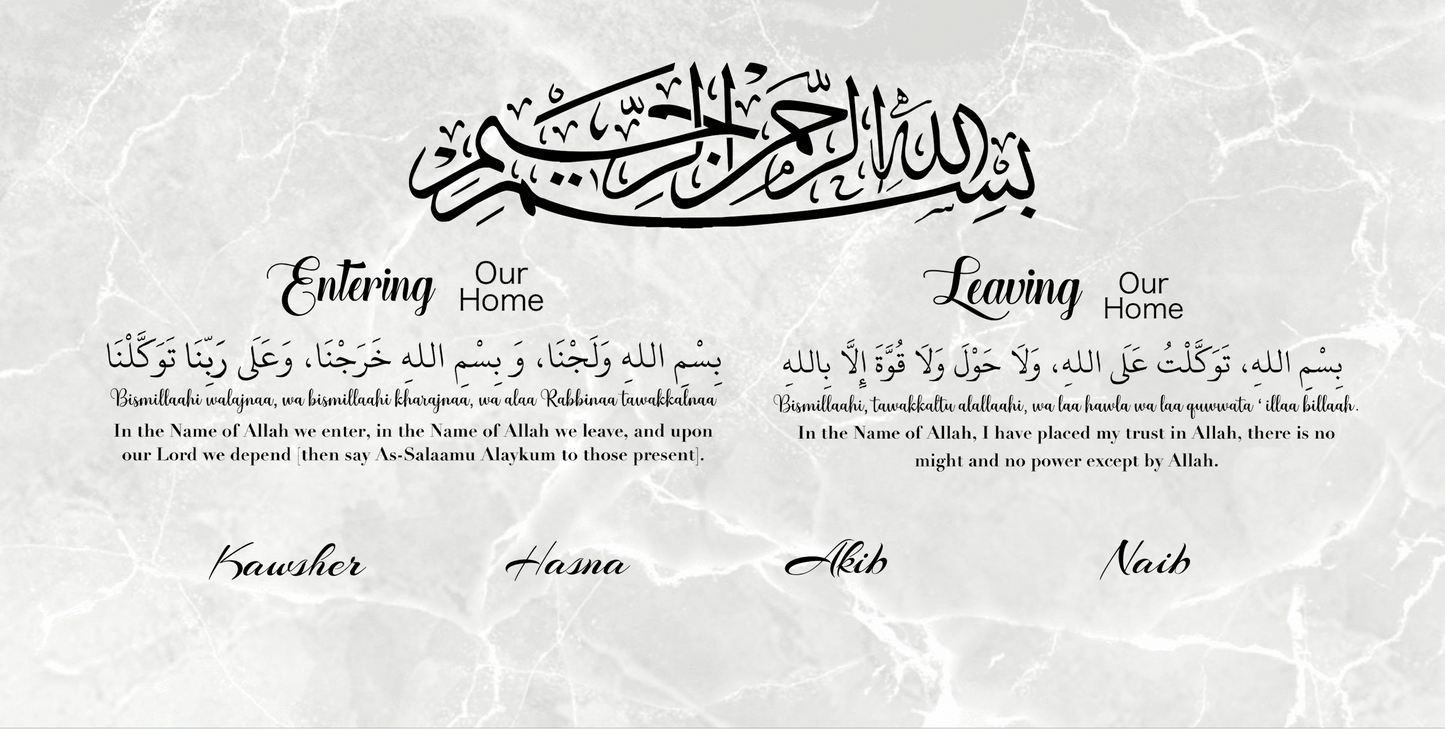 بسم الله الرحمن الرحيم
Entering Our Home
بِسْمِ اللهِ وَلَجْنَا، وَ بِسْمِ اللهِ خَرَجْنَا، وَعَلَى رَبِّنَا تَوَكَّلْنَا
Bismillaahi walajnaa, wa bismillaahi kharajnaa, wa alaa Rabbinaa tawakkalnaa
In the Name of Allah we enter, in the Name of Allah we leave, and upon
our Lord we depend [then say As-Salaamu Alaykum to those present].
Leaving Our Home
بِسْمِ اللهِ، تَوَكَّلْتُ عَلَى اللهِ، وَلَا حَوْلَ وَلَا قُوَّةَ إِلَّا بِاللهِ
Bismillaahi, tawakkaltu alallaahi, wa laa hawla wa laa quwwata ‘ illaa billaah.
In the Name of Allah, I have placed my trust in Allah, there is no
might and no power except by Allah.
Kawsher Hasna Akib Naib